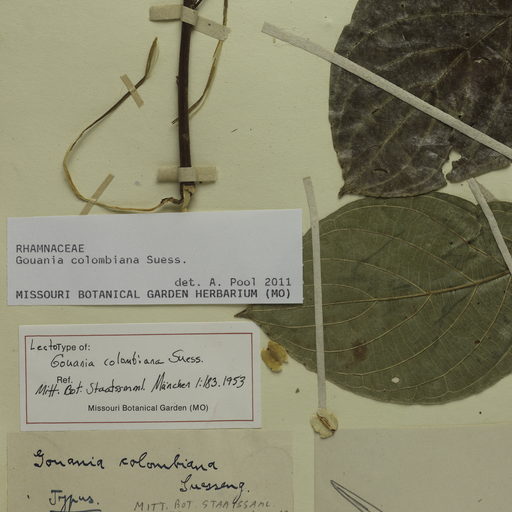 RHAMNACEAE
Gouania colombiana Suess.
det. A. Pool 2011
MISSOURI BOTANICAL GARDEN HERBARIUM (MO)
LectoType of:
Gouania colombiana Suess.
Ref.
Mitt. Bot. Staatssamml. München 1:183.1953
Missouri Botanical Garden (MO)
Gouania colombiana
Suesseng.
Typus.
MITT. BOT. STAATSSAML.